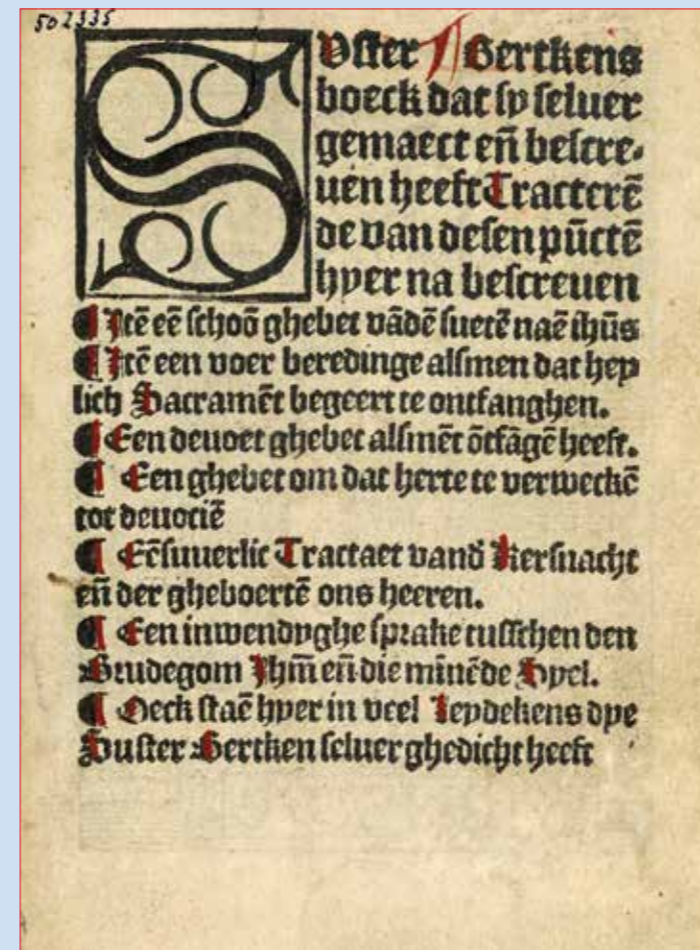 502335
SUster Bertkens
boeck dat sy seluer
gemaect eñ bescre-
uen heeft Tracterē
de van desen pūctē
hyer na bescreuen
¶ Itē eē schoō ghebet vādē suetē naē ihūs
¶ Itē een voer beredinge alsmen dat hey
lich Sacramēt begeert te ontfanghen.
¶ Een deuoet ghebet alsmēt ōtfāgē heeft.
¶ Een ghebet om dat herte te verweckē
tot deuociē
¶ Eē suuerlic Tractaet vand̄ Kersnacht
eñ der gheboertē ons heeren.
¶ Een inwendyghe sprake tusschen den
Brudegom Ihm̄ eñ die mīnēde Syel.
¶ Oeck staē hyer in veel leydekens dye
Suster Bertken seluer ghedicht heeft